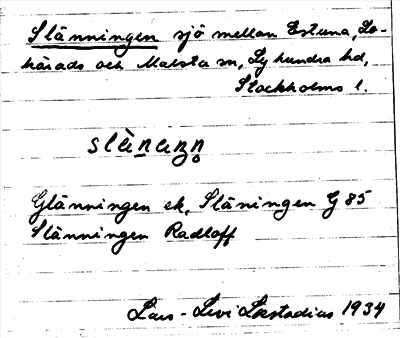 Slänningen sjö mellan Estuna, Lo-
härads och Malsta sn, Lyhundra hd,
Stockholms l.
slànaŋn̥
Glänningen ek, Släningen G 85
Slänningen Radloff
Lars-Levi Læstadius 1934